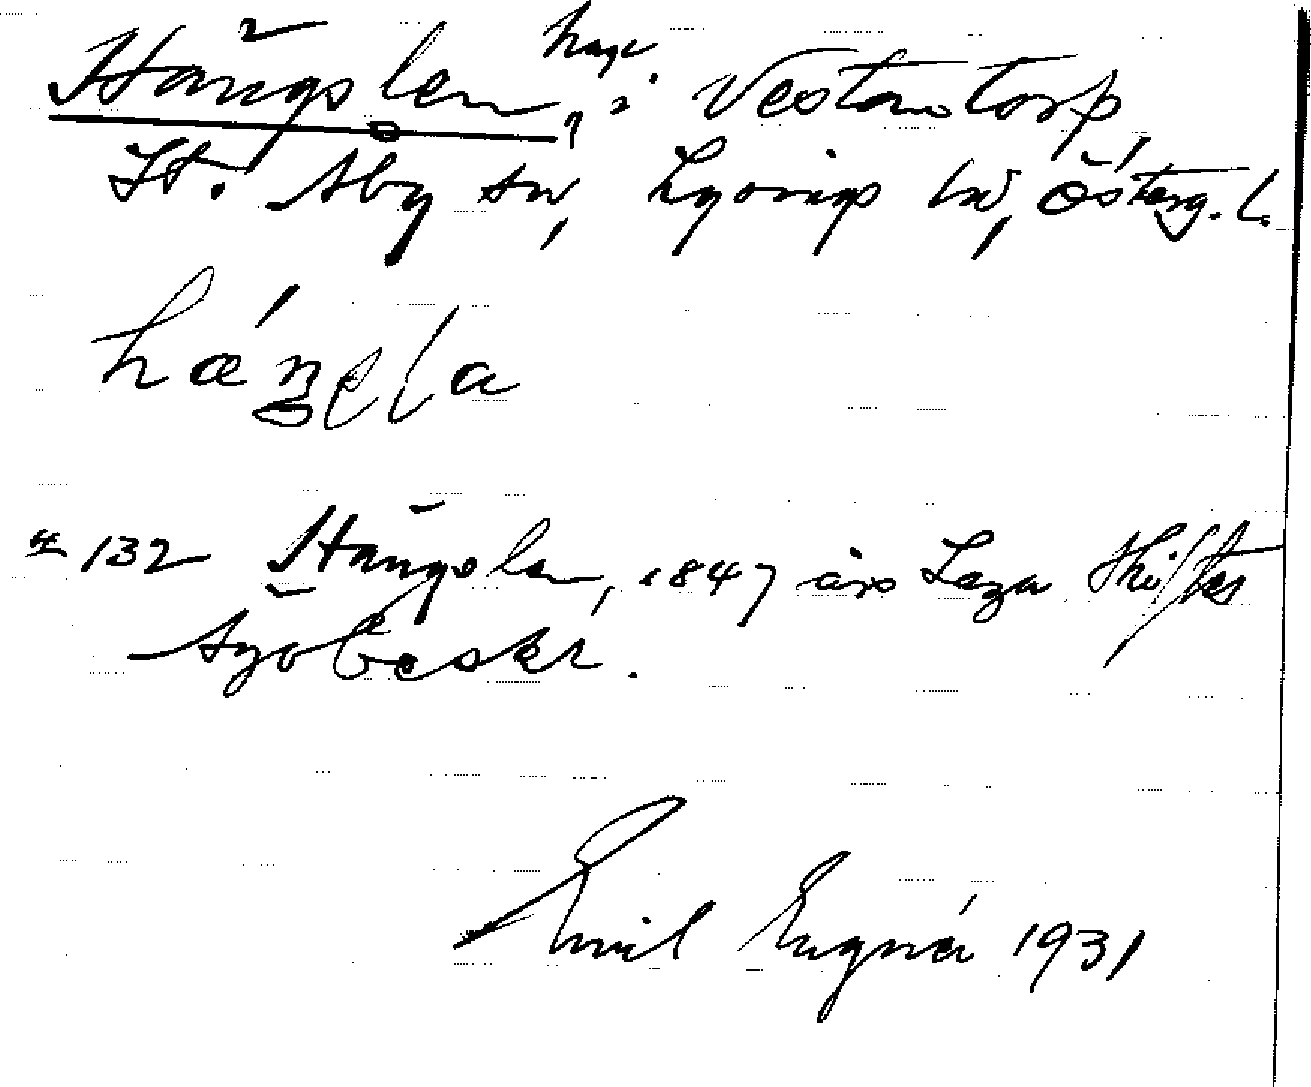 Hängslen, hage. i Vestantorp,
St. Åby sn, Lysings hd, Österg. l.
132 Hängslen, 1847 års Laga skiftes
ägobeskr.
Emil 1931